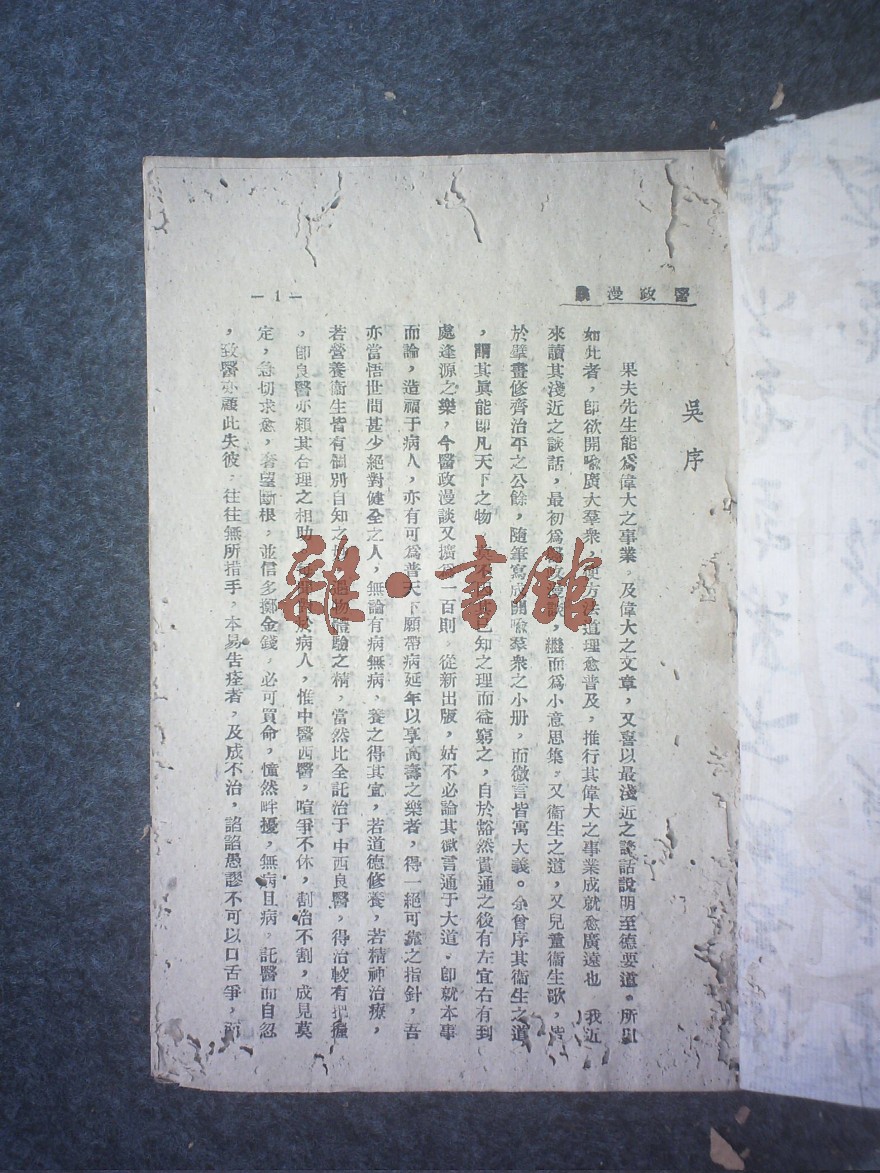 醫政漫
— 1 —
吳序
果夫先生能為偉大之事業,及偉大之文章,又喜以最淺近之談話說明至德要道。所以
如此者,卽欲開喩廣大羣衆,使方法道理愈普及,推行其偉大之事業成就愈廣遠也 我近
來讀其淺近之談話,最初為醫政漫談,繼而為小意思集,又衞生之道,又兒童衞生歌,皆
於擘畫修齊治平之公餘,隨筆寫成開喩羣衆之小册,而微言皆寓大義。余曾序其衞生之道
,謂其眞能卽凡天下之物 莫不因其已知之理而益窮之,自於豁然貫通之後有左宜右有到
處逢源之樂,今醫政漫談又擴為二百則 從新出版,姑不必論其微言通于大道,卽就本事
而論,造福于病人,亦有可為普天下願帶病延年以享高壽之樂者,得一絕可靠之指針,吾
亦當悟世間甚少絕對健全之人,無論有病無病,養之得其宜,若道德修養,若精神治療,
若營養衞生皆有個別自知之 遇物體驗之精,當然比全託治于中西良醫,得治較有把握
,卽良醫亦賴其合理之相助 於病人,惟中醫西醫,喧爭不休,割治不割,成見莫
定,急切求愈,奢望斷根,並信多擲金錢,必可買命,憧然畔擾,無病且病,託醫而自忽
,致醫亦顧此失彼,往往無所措手,本易告痊者,反成不治,諂諂愚謬不可以口舌爭,而
雜·書館